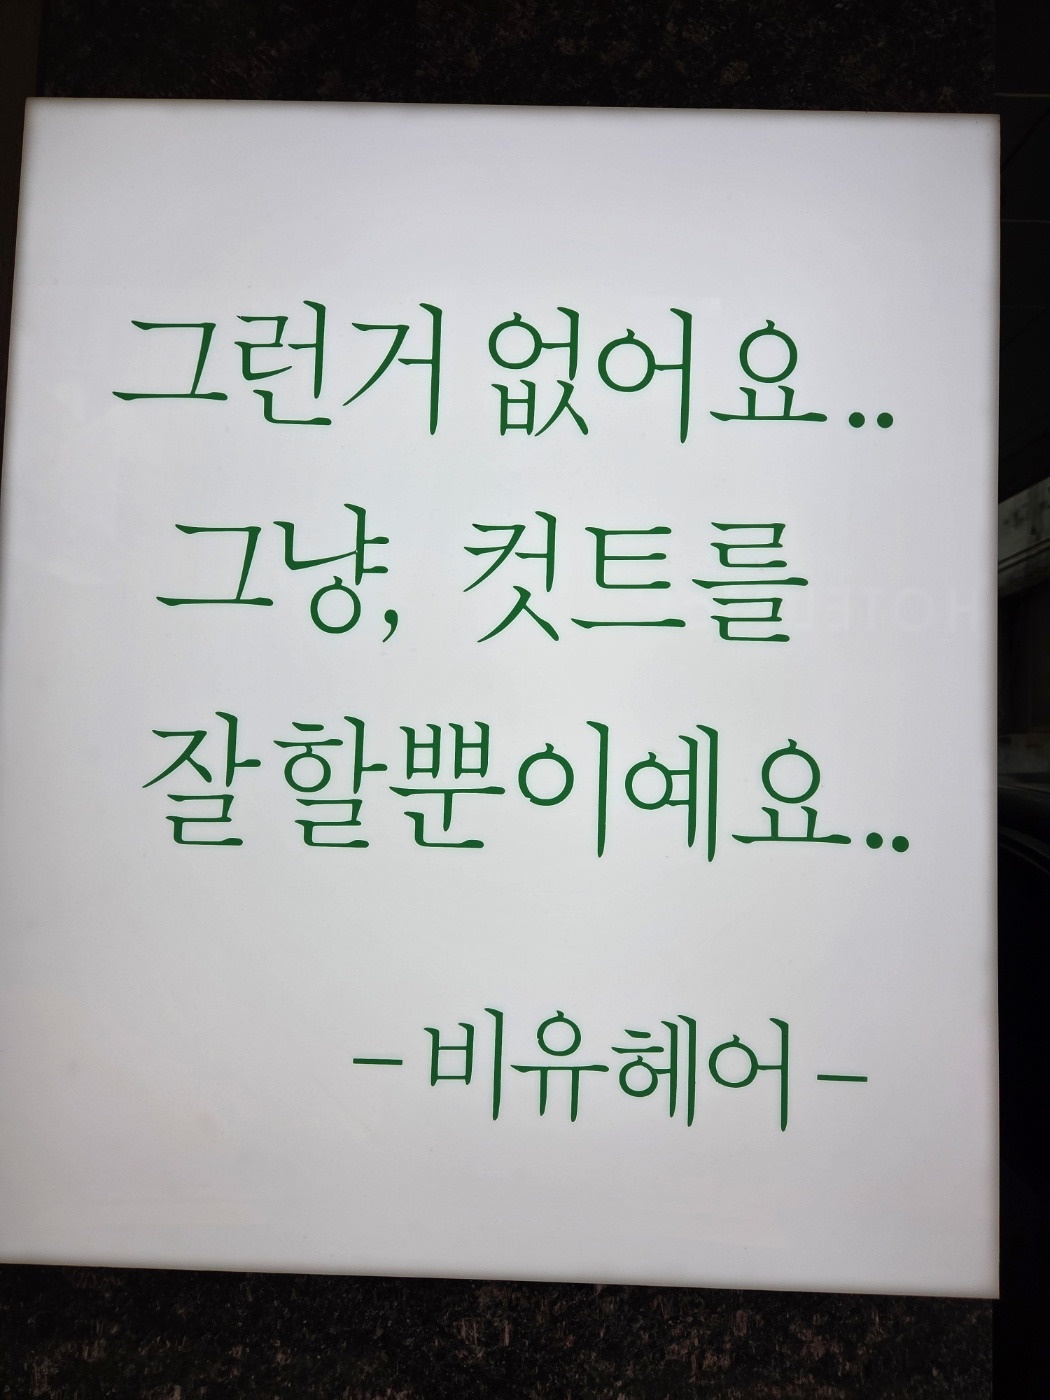 그런거 없어요..
그냥, 컷트를
잘할뿐이예요..
-비유헤어-
HOTEL